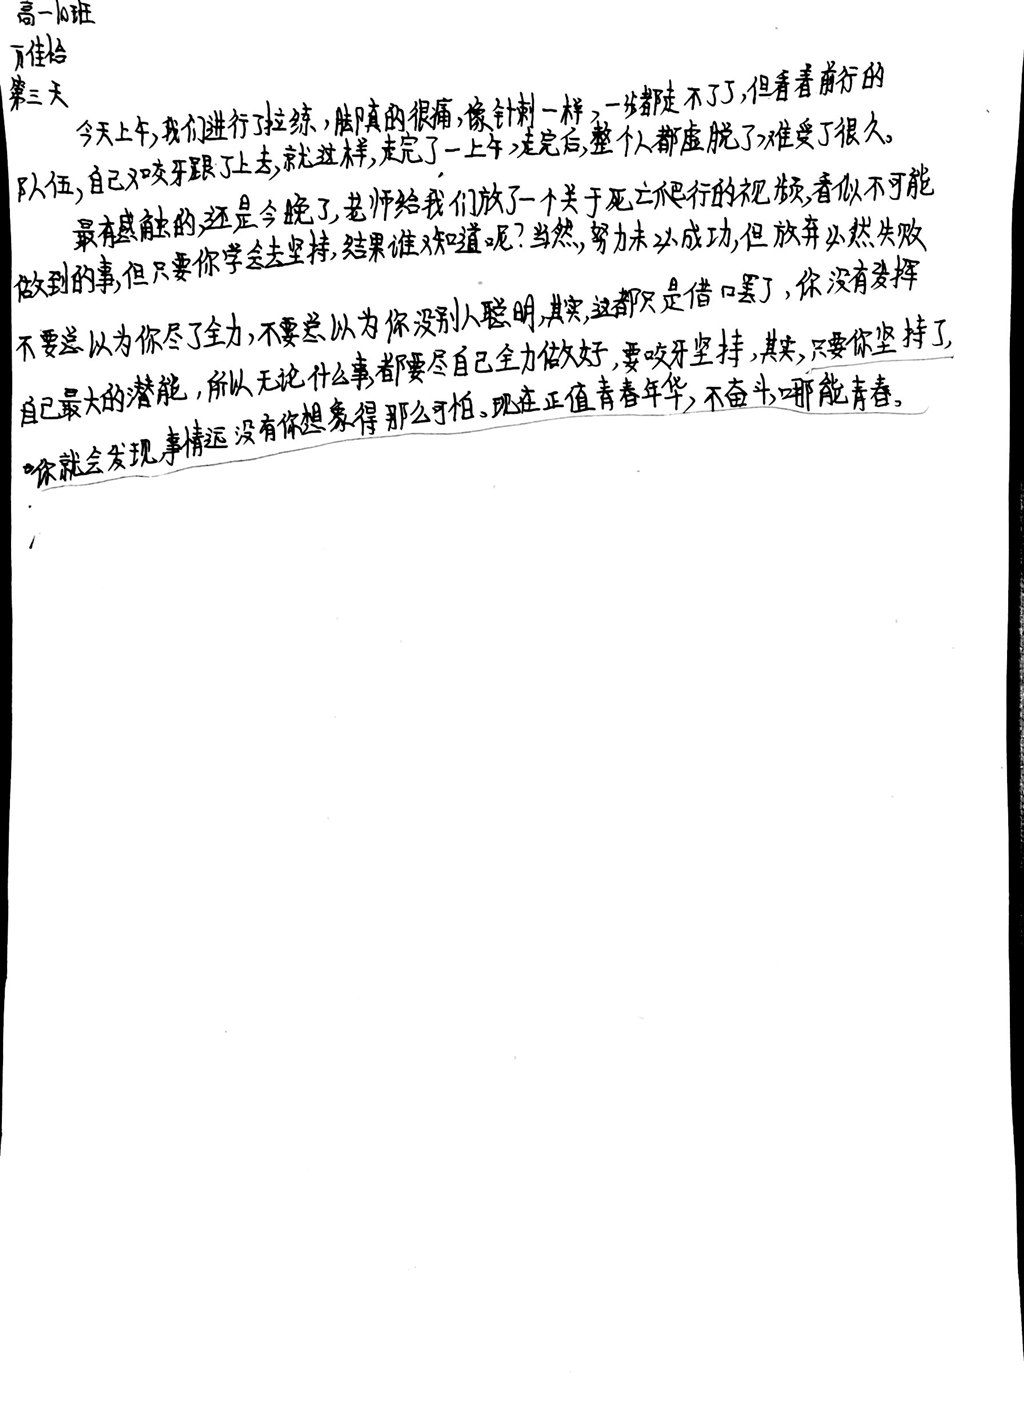 高一10班
万佳怡
第三天
今天上午,我们进行了拉练,脚真的很痛,像针刺一样,一步都走不了了,但看着前行的
队伍,自己又咬牙跟了上去,就这样,走完了一上午,走完后,整个人都虚脱了,难受了很久。
最有感触的,还是今晚了,老师给我们放了一个关于死亡爬行的视频,看似不可能
做到的事,但只要你学会去坚持,结果谁又知道呢?当然,努力未必成功,但放弃必然失败
不要总以为你尽了全力,不要总以为你没别人聪明,其实,这都只是借口罢了,你没有发挥
自己最大的潜能,所以无论什么事,都要尽自己全力做好,要咬牙坚持,其实,只要你坚持了,
你就会发现,事情远没有你想象得那么可怕。现在正值青春年华,不奋斗,哪能青春。